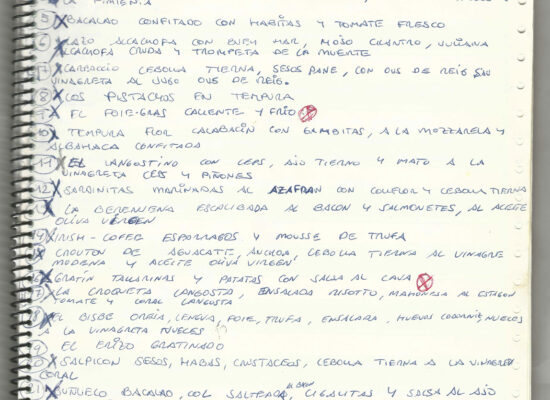 LA PIMIENTA
5 BACALAO CONFITADO CON HABITAS Y TOMATE FRESCO
6 ALCACHOFA CON BUEY MAR, MOJO CILANTRO, JULIANA
ALCACHOFA CRUDA Y TROMPETA DE LA MUERTE
7 CARPACCIO CEBOLLA TIERNA, SESOS PANE, CON OUS DE REIG SU
VINAGRETA AL JUGO OUS DE REIG.
8 LOS PISTACHOS EN TEMPURA
9 EL FOIE-GRAS CALIENTE Y FRIO
10 TEMPURA FLOR CALABACIN CON GAMBITAS, A LA MOZZARELA Y
ALBAHACA CONFITADA
11 EL LANGOSTINO CON CEPS, AJO TIERNO Y MATO A LA
VINAGRETA CEPS Y PIÑONES
12 SARDINITAS MARINADAS AL AZAFRAN CON COLIFLOR Y CEBOLLA TIERNA
LA BERENJENA ESCALIBADA AL BACON Y SALMONETES, AL ACEITE
OLIVA VIRGEN
IRISH-COFEE ESPARRAGOS Y MOUSSE DE TRUFA
CROUTON DE AGUACATE, ANCHOA, CEBOLLA TIERNA AL VINAGRE
MODENA Y ACEITE OLIVA VIRGEN
GRATIN TALLARINAS Y PATATAS CON SALSA AL CAVA
LA CROQUETA LANGOSTA, ENSALADA RISOTTO, MAHONESA AL ESTAGON
TOMATE Y CORAL LANGOSTA
EL BISBE OREJA, LENGUA, FOIE, TRUFA, ENSALADA, HUEVOS
A LA VINAGRETA NUECES
EL ERIZO GRATINADO
SALPICON SESOS, HABAS, CRUSTACEOS, CEBOLLA TIERNA A LA VINAGRETA
CORAL
21 BUÑUELO BACALAO, COL SALTEADA AL BACON, CIGALITAS Y SALSA AL AJO